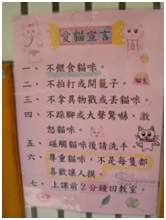 愛貓宣言
一、不餵食貓咪。
二、不拍打或開籠子。
三、不拿異物戳或丟貓咪。
四、不踩腳或大聲驚嚇、激
怒貓咪。
五、碰觸貓咪後請洗手
六、尊重貓咪,不是每隻都
喜歡讓人摸。
七、上課前2分鐘回教室。